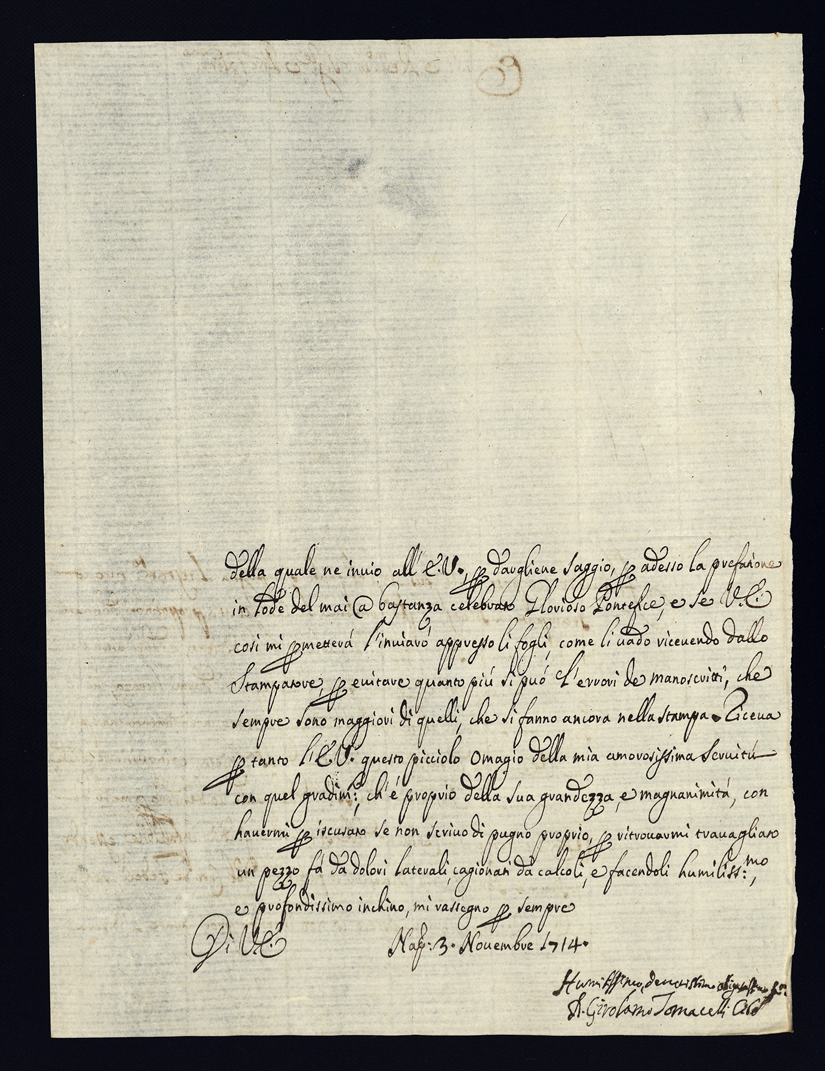 della quale ne invio all' E.V. p dargliene saggio, p adesso la prefazione
in lode del mai @ bastanza celebrato Glorioso Pontefice, e se V.E.
così mi pmetterà l'inviarò appresso li fogli, come li vado ricevendo dallo
Stampatore, p evitare quanto più si può l'errori de manoscritti, che
sempre sono maggiori di quelli, che si fanno ancora nella stampa. Riceva
p tanto l'E.V. questo picciolo omagio della mia amorosissima servitù
con quel gradim:, ch'è proprio della sua grandezza e magnanimità, con
havermi p iscusato se non scrivo di pugno proprio, p ritrovarmi travagliato
un pezzo fà da dolori laterali, cagionati da calcoli, e facendoli humiliss:mo,
e profondissimo inchino, mi rassegno p sempre
Di V.E. Nap: 3. Novembre 1714.
Humilissimo, devotissimo
D. Girolamo Tomacelli